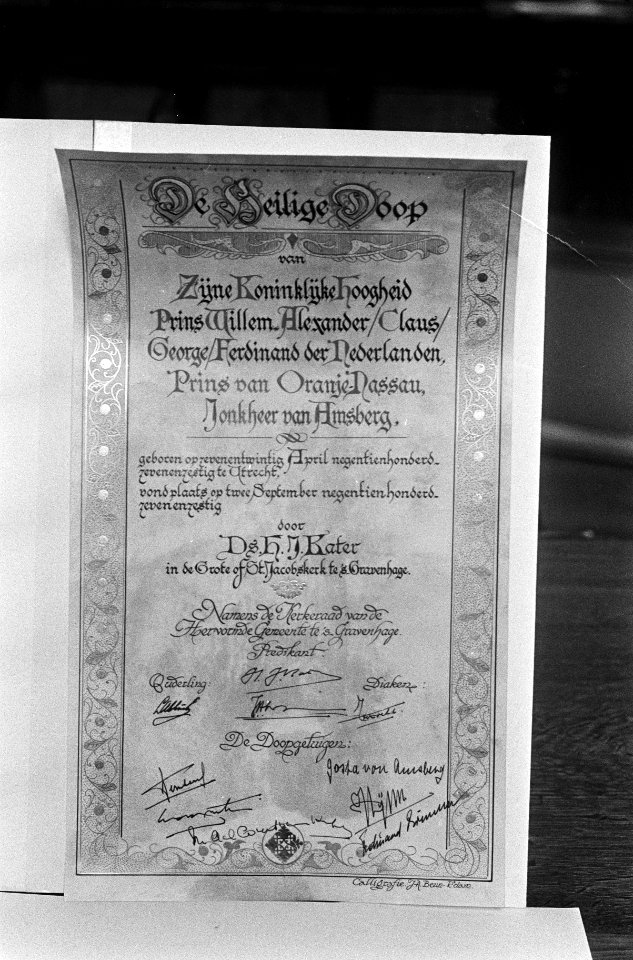 De Heilige Doop
van
Zijne Koninklijke Hoogheid
Prins Willem-Alexander/Claus/
George/Ferdinand der Nederlanden,
Prins van Oranje-Nassau,
Jonkheer van Amsberg,
geboren op zevenentwintig April negentienhonderd-
zevenenzestig te Utrecht,
vond plaats op twee September negentienhonderd-
zevenenzestig
door
Ds. H. J. Kater
in de Grote of St. Jacobskerk te 's Gravenhage.
Namens de Kerkeraad van de
Hervormde Gemeente te 's Gravenhage.
Predikant:
Ouderling: Diaken:
De Doopgetuigen:
Gosta von Amsberg
Ferdinand
Calligrafie: J.A. R'dam.